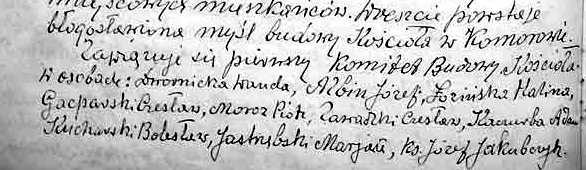 miejscowych mieszkańców. Wreszcie powstaje
błogosławiona myśl budowy Kościoła w Komorowie.
Zawiązuje się pierwszy Komitet Budowy Kościoła
w osobach: Dwornicka Wanda, Albin Józef, Łozińska Halina,
Gacparski Czesław, Moroz Piotr, Zawadzki Czesław, Kaczurba Adam
Kucharski Bolesław, Jastrzębski Marjan, ks. Józef Jakubczyk.